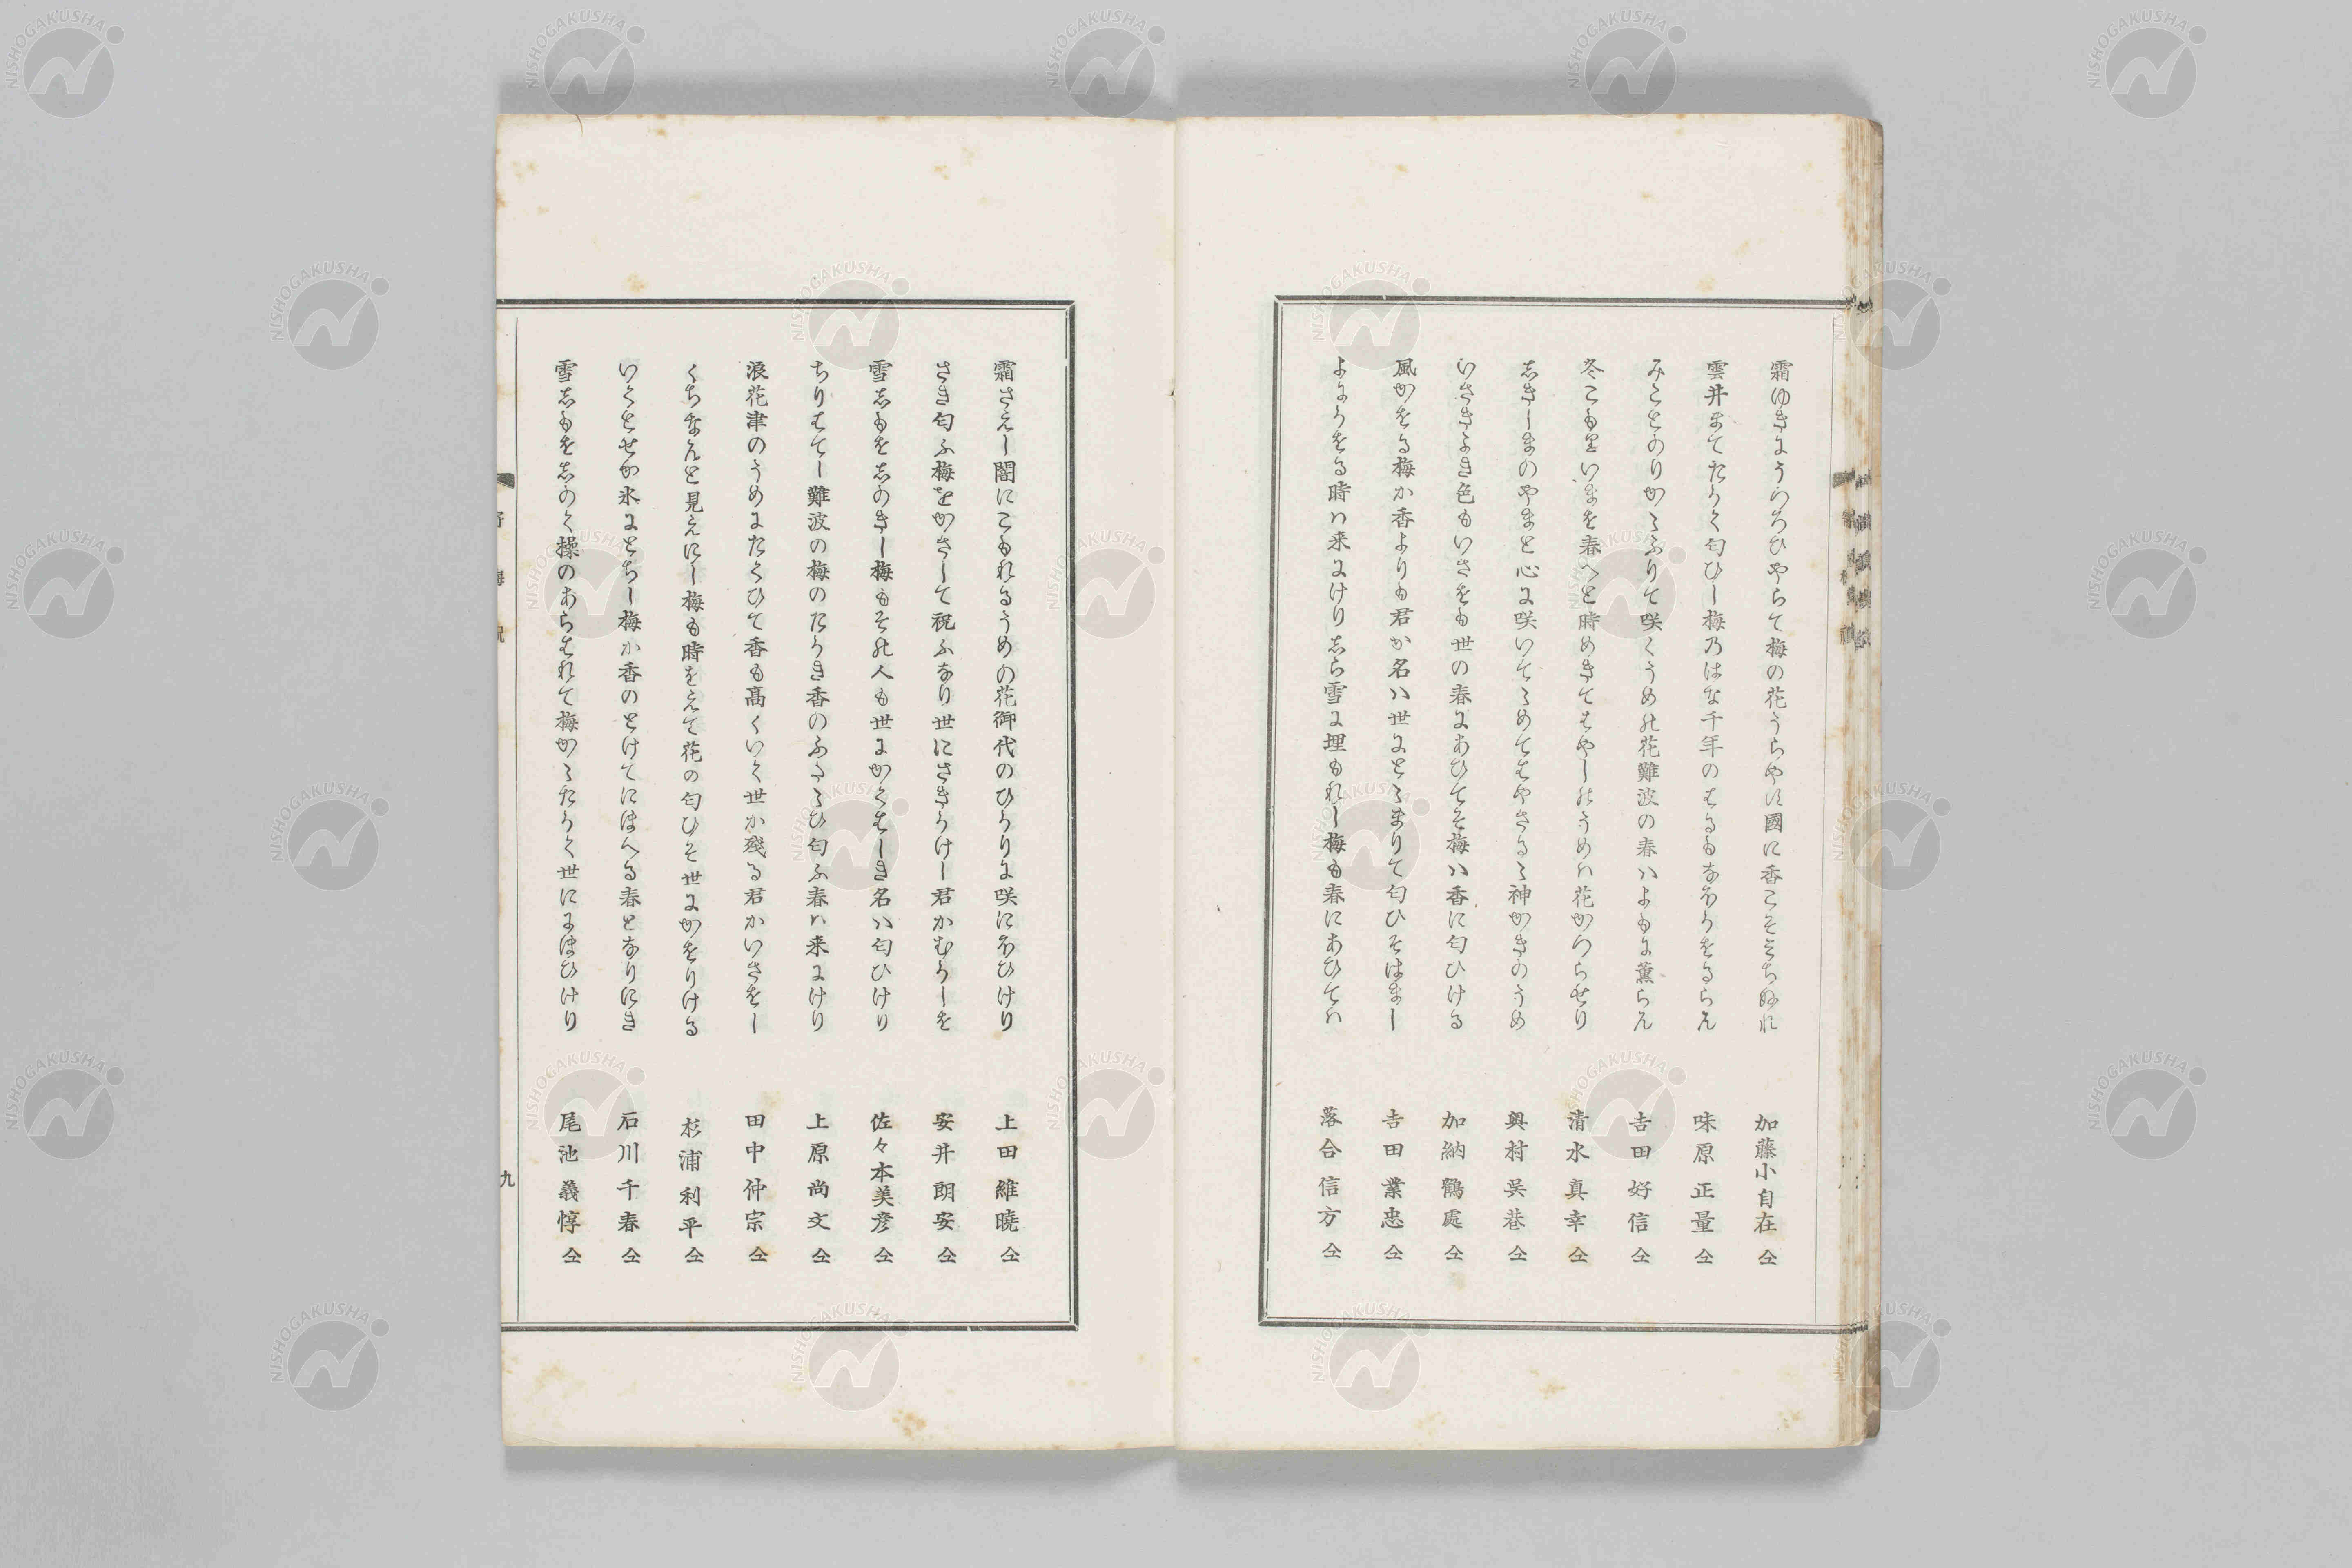 霜ゆきにうつろひやらて梅の花うらやす國に香こそみちぬれ
加藤小自在 仝
雲井まてたかく匂ひし梅乃はな千年のはるもなほかをるらん
味原正量 仝
みことのりかゝふりて咲くうめの花難波の春ハよもに薫らん
吉田好信 仝
冬こもりいまを春へと時めきてはやしのうめハ花かつらせり
清水真幸 仝
しきしまのやまと心に咲いてゝめてはやさるゝ神かきのうめ
奥村呉巷 仝
いさきよき色もいさをも世の春にあひてそ梅ハ香に匂ひける
加納鶴處 仝
風かをる梅か香よりも君か名ハ世にとゝまりて匂ひそはまし
吉田業忠 仝
よにかをる時ハ来にけりしら雪に埋もれし梅も春にあひてハ
落合信方 仝
霜さえし闇にこもれるうめの花御代のひかりに咲にほひけり
上田維暁 仝
さき匂ふ梅をかさして祝ふなり世にさきかけし君かむかしを
安井朗安 仝
雪しもをしのきし梅もその人も世にかくはしき名ハ匂ひけり
佐々本美彦 仝
ちりはてし難波の梅のたかき香のふたゝひ匂ふ春ハ来にけり
上原尚文 仝
浪花津のうめにたくひて香も高くいく世か殘る君かいさをし
田中仲宗 仝
くちなんと見えにし梅も時をえて花の匂ひそ世にかをりける
杉浦利平 仝
いくとせか氷にとちし梅か香のとけてにほへる春となりにき
石川千春 仝
雪しもをしのく操のあらはれて梅かゝたかく世ににほひけり
尾池義惇 仝
九